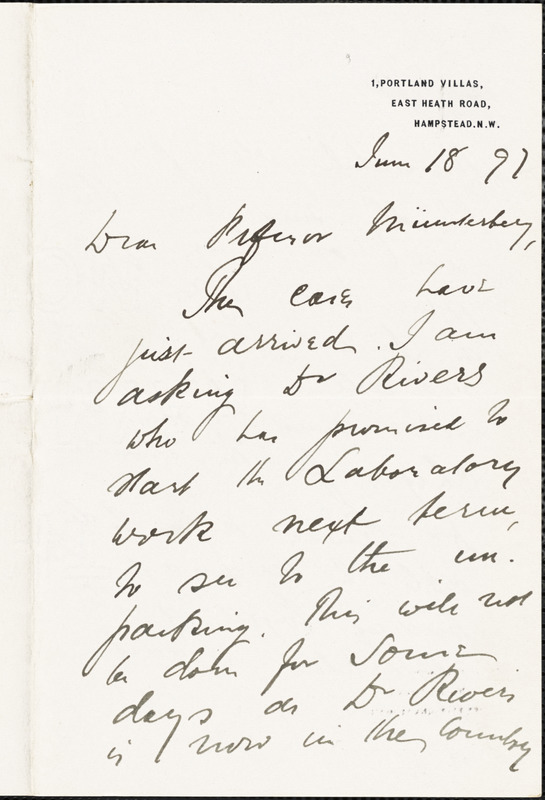 1, PORTLAND VILLAS,
EAST HEATH ROAD,
HAMPSTEAD. N.W.
June 18 97
Dear Professor Münsterberg,
The cases have
just arrived. I am
asking Dr Rivers
who has promised to
start the Laboratory
work next term,
to see to the un-
packing. This will not
be done for some
days as Dr Rivers
is now in the Country